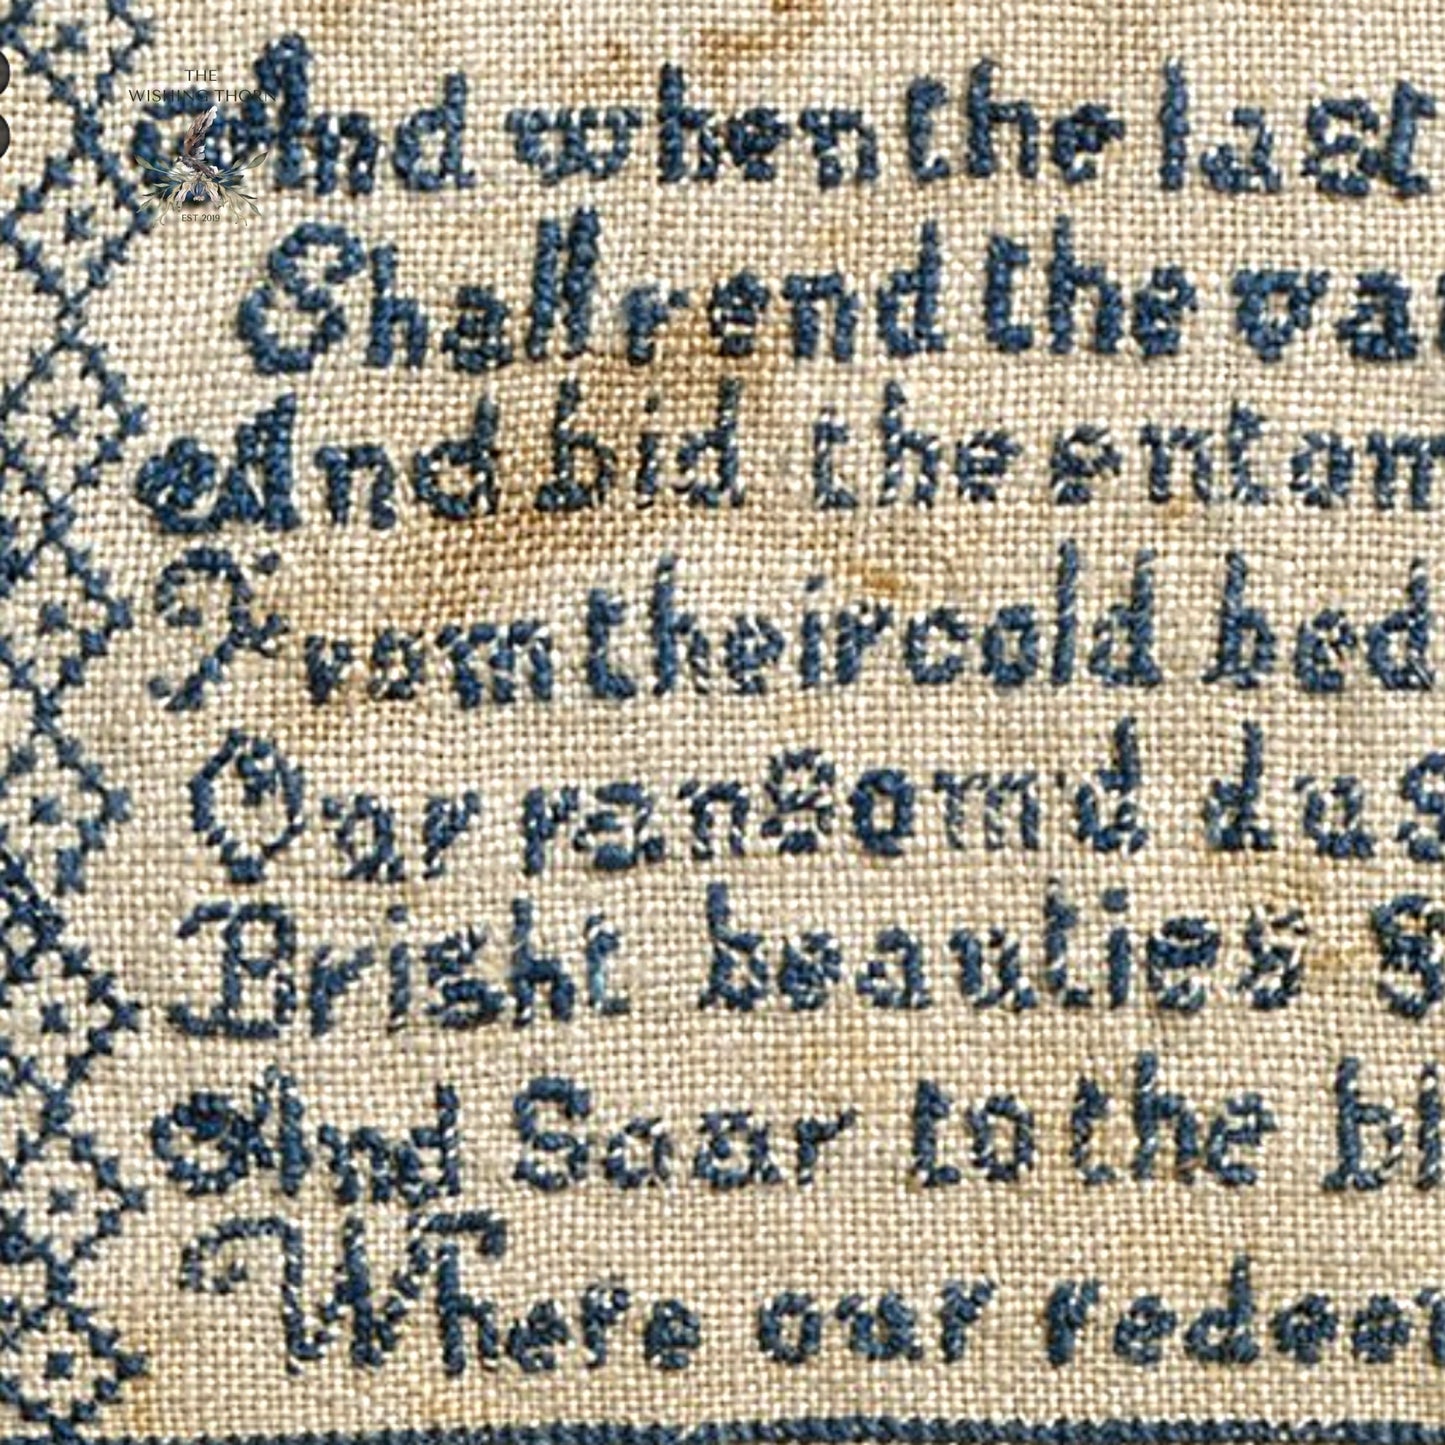 THE
WISHING THORN
EST 2019
And when the last
Shall rend the va
And bid the entom
From their cold bed
Our ransom'd dus
Bright beauties s
And Soar to the bl
Where our redee